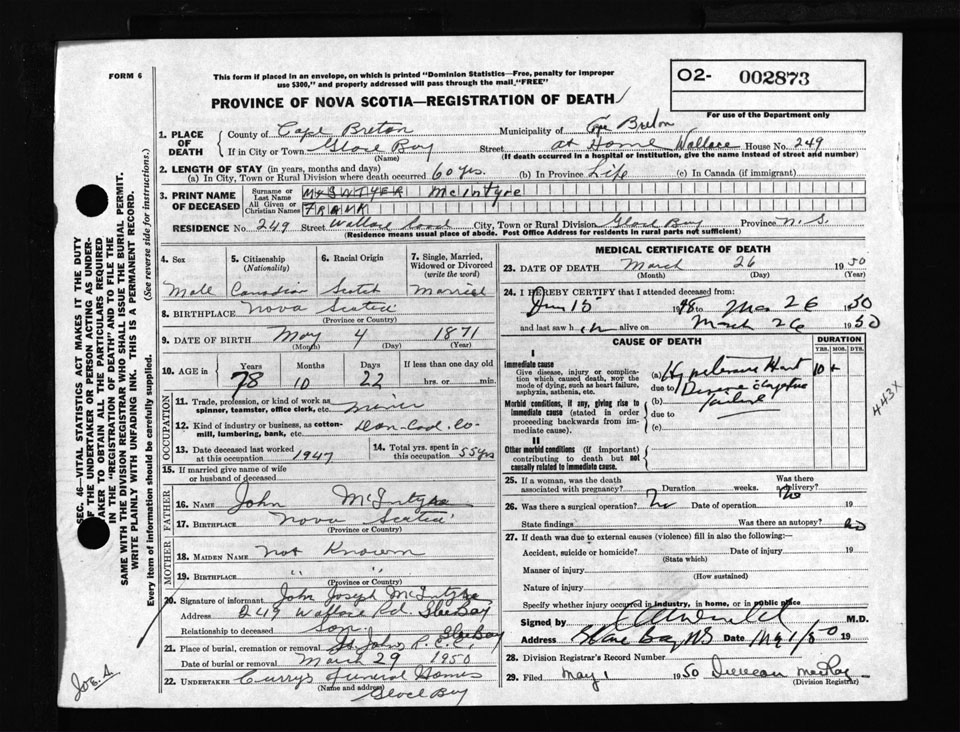 FORM 6
This form if placed in an envelope, on which is printed "Dominion Statistics—Free, penalty for improper
use $300," and properly addressed will pass through the mail "FREE"
O2- 002873
For use of the Department only
PROVINCE OF NOVA SCOTIA—REGISTRATION OF DEATH
1. PLACE OF DEATH
County of Cape Breton Municipality of Cape Breton
If in City or Town Glace Bay Street at Home Wallace House No. 249
(Name) (If death occurred in a hospital or institution, give the name instead of street and number)
2. LENGTH OF STAY (in years, months and days)
(a) In City, Town or Rural Division where death occurred 60 yrs. (b) In Province Life (c) In Canada (if immigrant)
3. PRINT NAME OF DECEASED
Surname or Last Name McIntyre
All Given or Christian Names FRANK
RESIDENCE No. 249 Street Wallace Road City, Town or Rural Division Glace Bay Province N. S.
(Residence means usual place of abode. Post Office Address for residents in rural parts not sufficient)
4. Sex 5. Citizenship (Nationality) 6. Racial Origin 7. Single, Married, Widowed or Divorced (write the word)
Male Canadian Scotch Married
8. BIRTHPLACE Nova Scotia
(Province or Country)
9. DATE OF BIRTH May 4 1871
(Month) (Day) (Year)
10. AGE in Years Months Days If less than one day old
78 10 22 hrs. or min.
OCCUPATION
11. Trade, profession, or kind of work as
spinner, teamster, office clerk, etc. miner
12. Kind of industry or business, as cotton-
mill, lumbering, bank, etc. Dom. Coal. Co.
13. Date deceased last worked at this occupation 1947
14. Total yrs. spent in this occupation 55 yrs
15. If married give name of wife
or husband of deceased
FATHER
16. Name John McIntyre
17. BIRTHPLACE Nova Scotia
(Province or Country)
MOTHER
18. MAIDEN NAME not Known
19. BIRTHPLACE " "
(Province or Country)
20. Signature of informant John Joseph McIntyre
Address 249 Wallace Rd. Glace Bay
Relationship to deceased son
21. Place of burial, cremation or removal St. John's Glace Bay
Date of burial or removal March 29 1950
22. UNDERTAKER Curry's Funeral Homes
(Name and address) Glace Bay
MEDICAL CERTIFICATE OF DEATH
23. DATE OF DEATH March 26 1950
(Month) (Day) (Year)
24. I HEREBY CERTIFY that I attended deceased from:
15 1948 to Mar 26 1950
and last saw him alive on March 26 1950
CAUSE OF DEATH DURATION
YRS. MOS. DYS.
I
Immediate cause
Give disease, injury or complication which caused death, NOT the mode of dying, such as heart failure, asphyxia, asthenia, etc.
(a) Hypertensive Heart 10+
due to Disease
Morbid conditions, if any, giving rise to immediate cause (stated in order proceeding backwards from immediate cause).
(b) failure
due to
(c)
443X
II
Other morbid conditions (if important) contributing to death but not causally related to immediate cause.
25. If a woman, was the death associated with pregnancy? Duration weeks. Was there delivery? No
26. Was there a surgical operation? No Date of operation 19
State findings Was there an autopsy? no
27. If death was due to external causes (violence) fill in also the following:
Accident, suicide or homicide? Date of injury 19
(State which)
Manner of injury
(How sustained)
Nature of injury
Specify whether injury occurred in industry, in home, or in public place
Signed by M.D.
Address Glace Bay NS Date May 1/50 19
28. Division Registrar's Record Number
29. Filed May 1 1950 Duncan MacKay
(Division Registrar)
SEC. 46—VITAL STATISTICS ACT MAKES IT THE DUTY
OF THE UNDERTAKER OR PERSON ACTING AS UNDER-
TAKER TO OBTAIN ALL THE PARTICULARS REQUIRED
IN THE "REGISTRATION OF DEATH" AND TO FILE THE
SAME WITH THE DIVISION REGISTRAR WHO SHALL ISSUE THE BURIAL PERMIT.
WRITE PLAINLY WITH UNFADING INK. THIS IS A PERMANENT RECORD.
Every item of information should be carefully supplied. (See reverse side for instructions.)